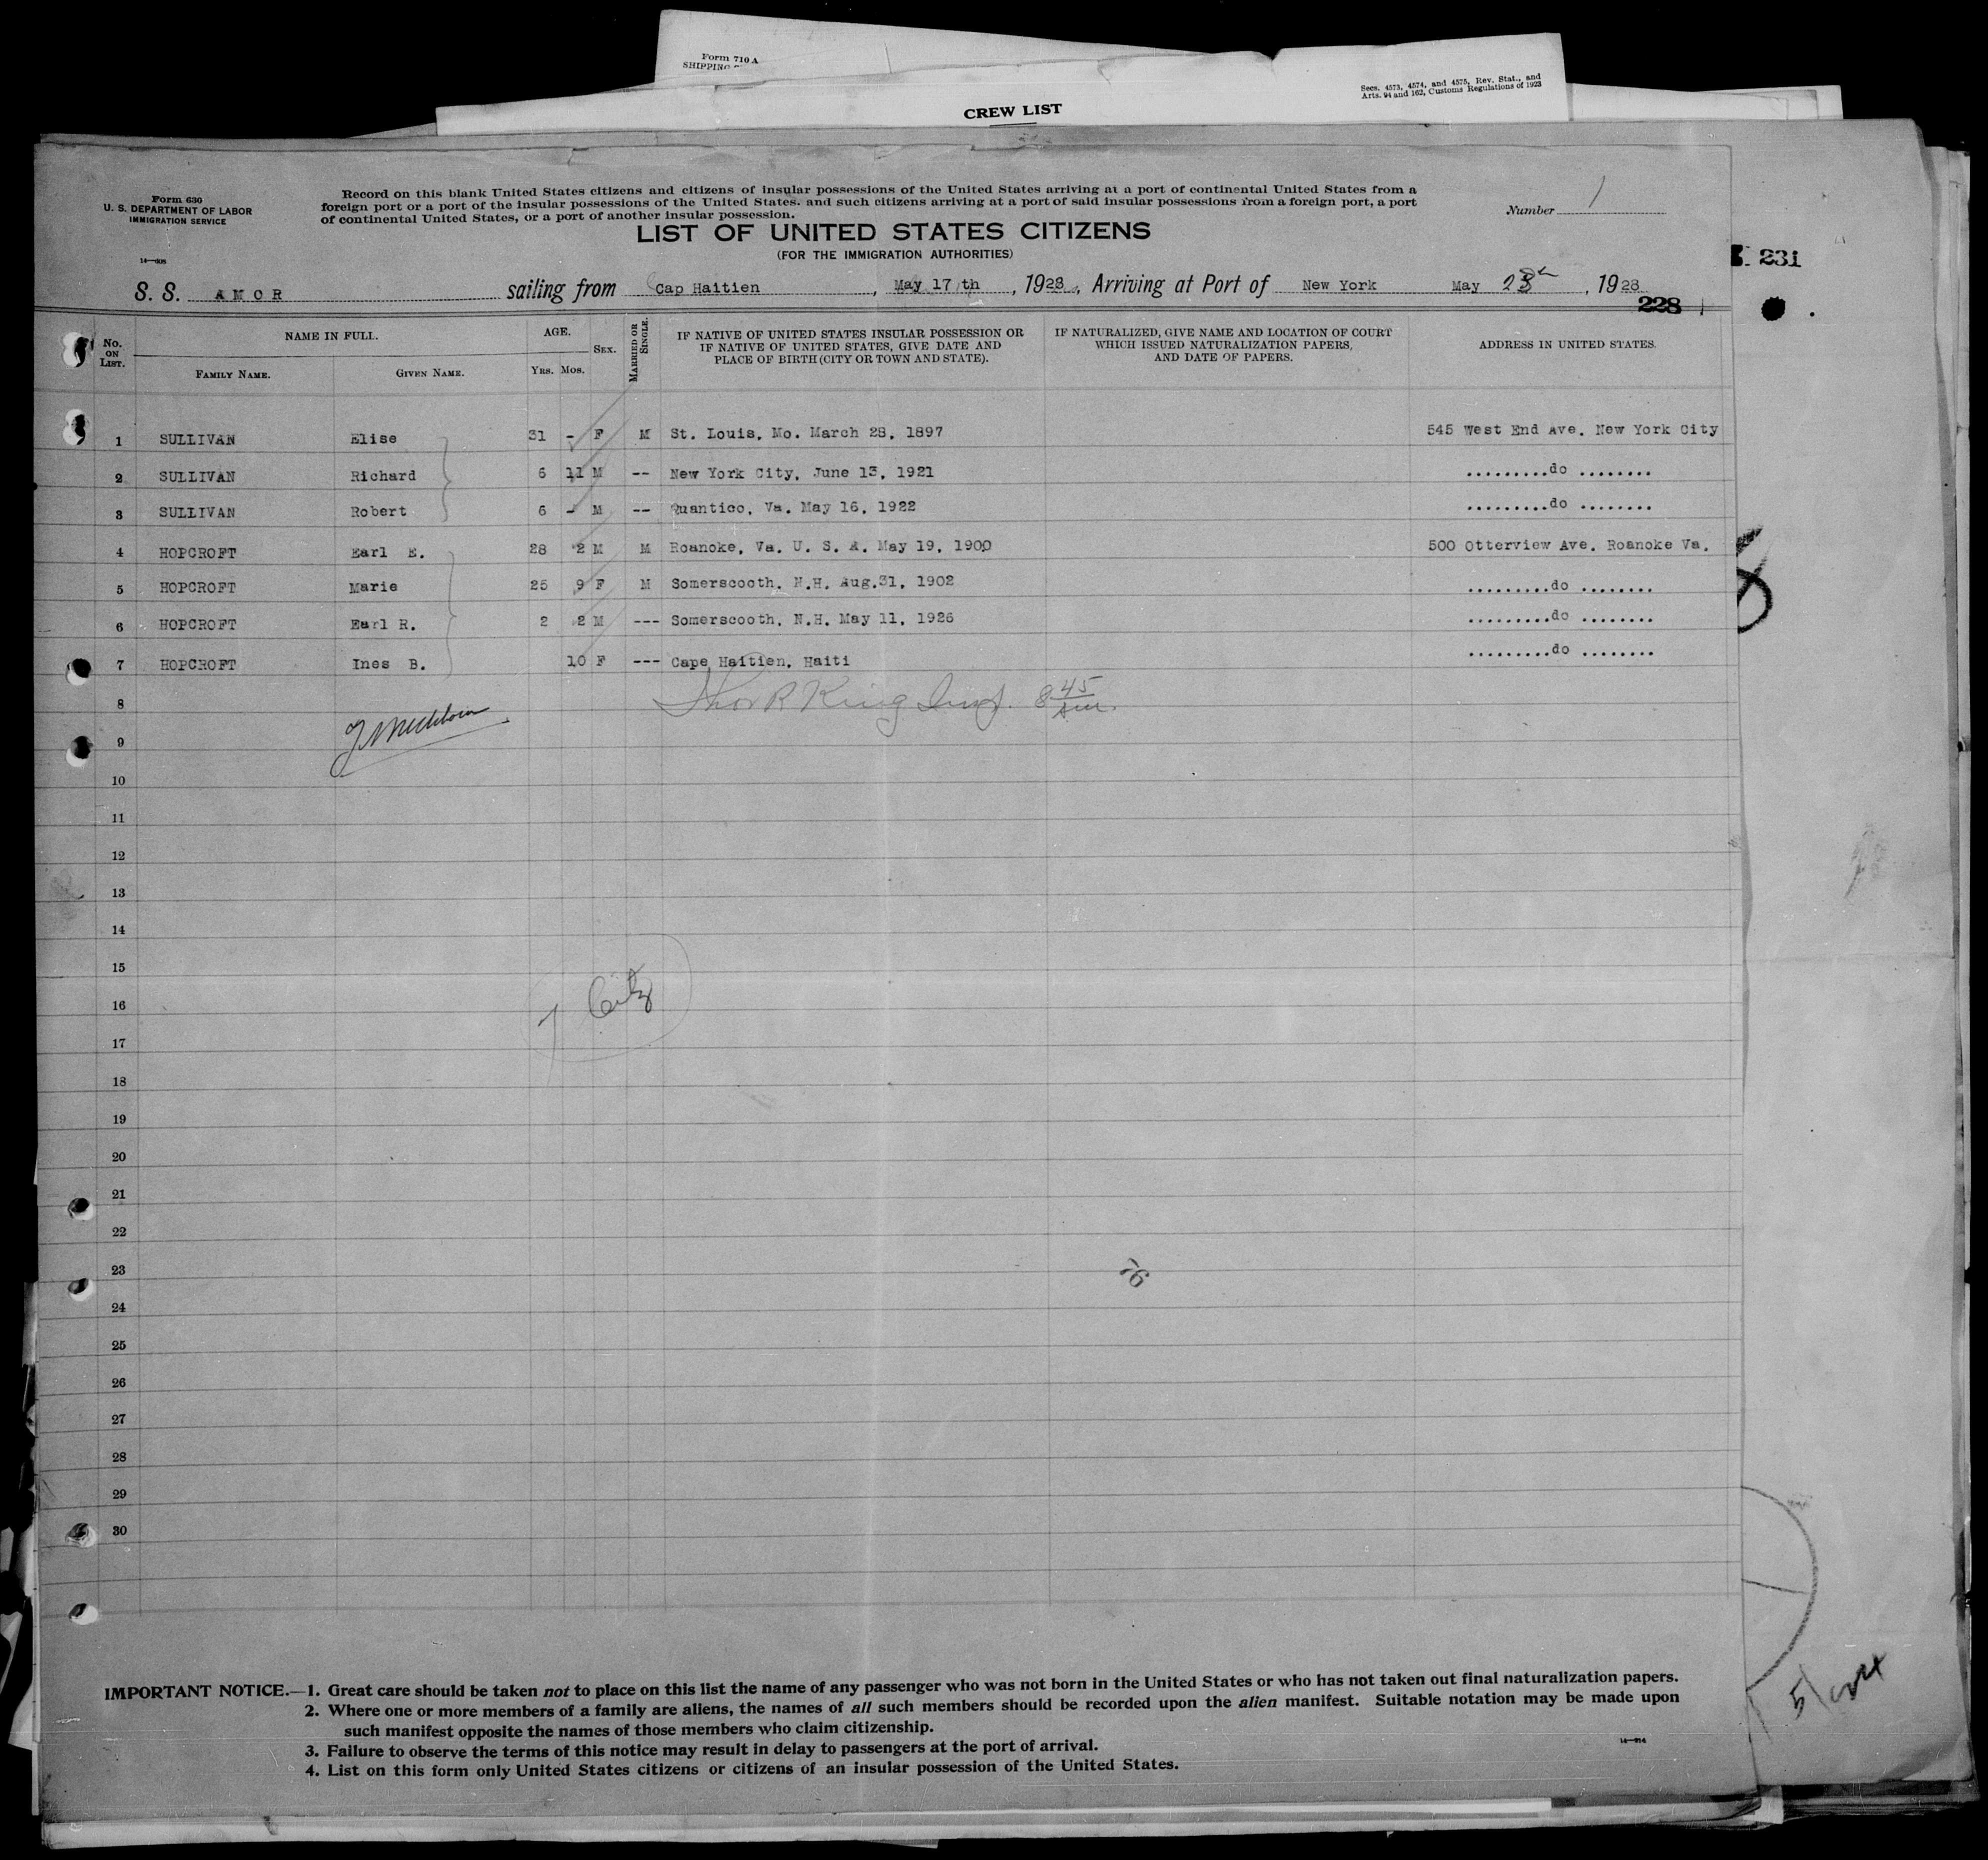 Form 710 A
SHIPPING
Secs. 4573, 4574, and 4575, Rev. Stat., and
Arts. 94 and 162, Customs Regulations of 1923
CREW LIST
Form 630
U. S. DEPARTMENT OF LABOR
IMMIGRATION SERVICE
14—608
Record on this blank United States citizens and citizens of insular possessions of the United States arriving at a port of continental United States from a
foreign port or a port of the insular possessions of the United States. and such citizens arriving at a port of said insular possessions from a foreign port, a port
of continental United States, or a port of another insular possession.
Number 1
LIST OF UNITED STATES CITIZENS
(FOR THE IMMIGRATION AUTHORITIES)
231
S. S. AMOR sailing from Cap Haitien, May 17 th, 1928, Arriving at Port of New York May 23, 1928
228
No. ON LIST. NAME IN FULL. AGE. SEX. MARRIED OR SINGLE. IF NATIVE OF UNITED STATES INSULAR POSSESSION OR IF NATIVE OF UNITED STATES, GIVE DATE AND PLACE OF BIRTH (CITY OR TOWN AND STATE). IF NATURALIZED, GIVE NAME AND LOCATION OF COURT WHICH ISSUED NATURALIZATION PAPERS, AND DATE OF PAPERS. ADDRESS IN UNITED STATES.
FAMILY NAME. GIVEN NAME. YRS. MOS.
1 SULLIVAN Elise 31 - F M St. Louis, Mo. March 28, 1897 545 West End Ave. New York City
2 SULLIVAN Richard 6 11 M -- New York City, June 13, 1921 .........do ........
3 SULLIVAN Robert 6 - M -- Quantico, Va. May 16, 1922 .........do ........
4 HOPCROFT Earl E. 28 2 M M Roanoke, Va. U. S. A. May 19, 1900 500 Otterview Ave. Roanoke Va.
5 HOPCROFT Marie 25 9 F M Somerscooth, N.H. Aug.31, 1902 .........do ........
6 HOPCROFT Earl R. 2 2 M --- Somerscooth, N.H. May 11, 1926 .........do ........
7 HOPCROFT Ines B. 10 F --- Cape Haitien, Haiti .........do ........
8 Thos R King Insp. 8 45 Am.
9
10
11
12
13
14
15
16 7 Citz
17
18
19
20
21
22
23 76
24
25
26
27
28
29
30
IMPORTANT NOTICE.—1. Great care should be taken not to place on this list the name of any passenger who was not born in the United States or who has not taken out final naturalization papers.
2. Where one or more members of a family are aliens, the names of all such members should be recorded upon the alien manifest. Suitable notation may be made upon
such manifest opposite the names of those members who claim citizenship.
3. Failure to observe the terms of this notice may result in delay to passengers at the port of arrival.
4. List on this form only United States citizens or citizens of an insular possession of the United States.